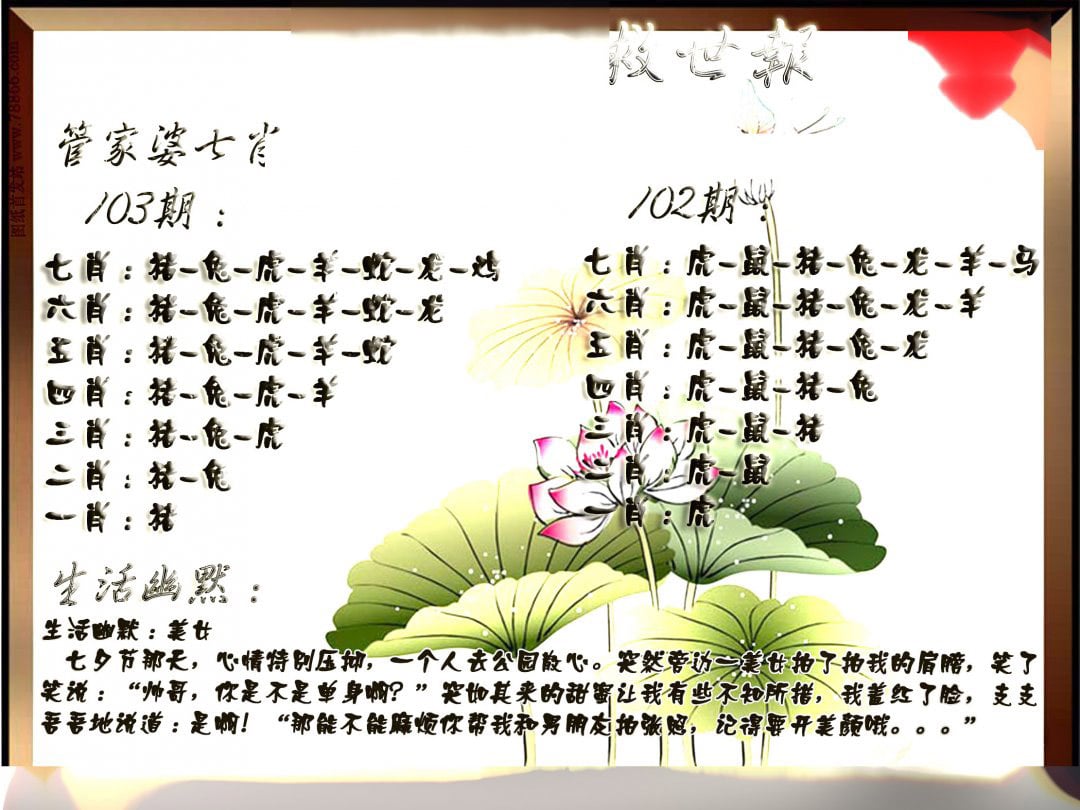 救世報
管家婆七肖
103期：
七肖：猪-兔-虎-羊-蛇-龙-鸡
六肖：猪-兔-虎-羊-蛇-龙
五肖：猪-兔-虎-羊-蛇
四肖：猪-兔-虎-羊
三肖：猪-兔-虎
二肖：猪-兔
一肖：猪
102期：
七肖：虎-鼠-猪-兔-龙-羊-马
六肖：虎-鼠-猪-兔-龙-羊
五肖：虎-鼠-猪-兔-龙
四肖：虎-鼠-猪-兔
三肖：虎-鼠-猪
二肖：虎-鼠
一肖：虎
生活幽默：
生活幽默：美女
七夕节那天，心情特别压抑，一个人去公园散心。突然旁边一美女拍了拍我的肩膀，笑了
笑说：“帅哥，你是不是单身啊？”突如其来的甜蜜让我有些不知所措，我羞红了脸，支支
吾吾地说道：是啊！“那能不能麻烦你帮我和男朋友拍张照，记得要开美颜哦。。。”
图纸首发站 www.78866.com